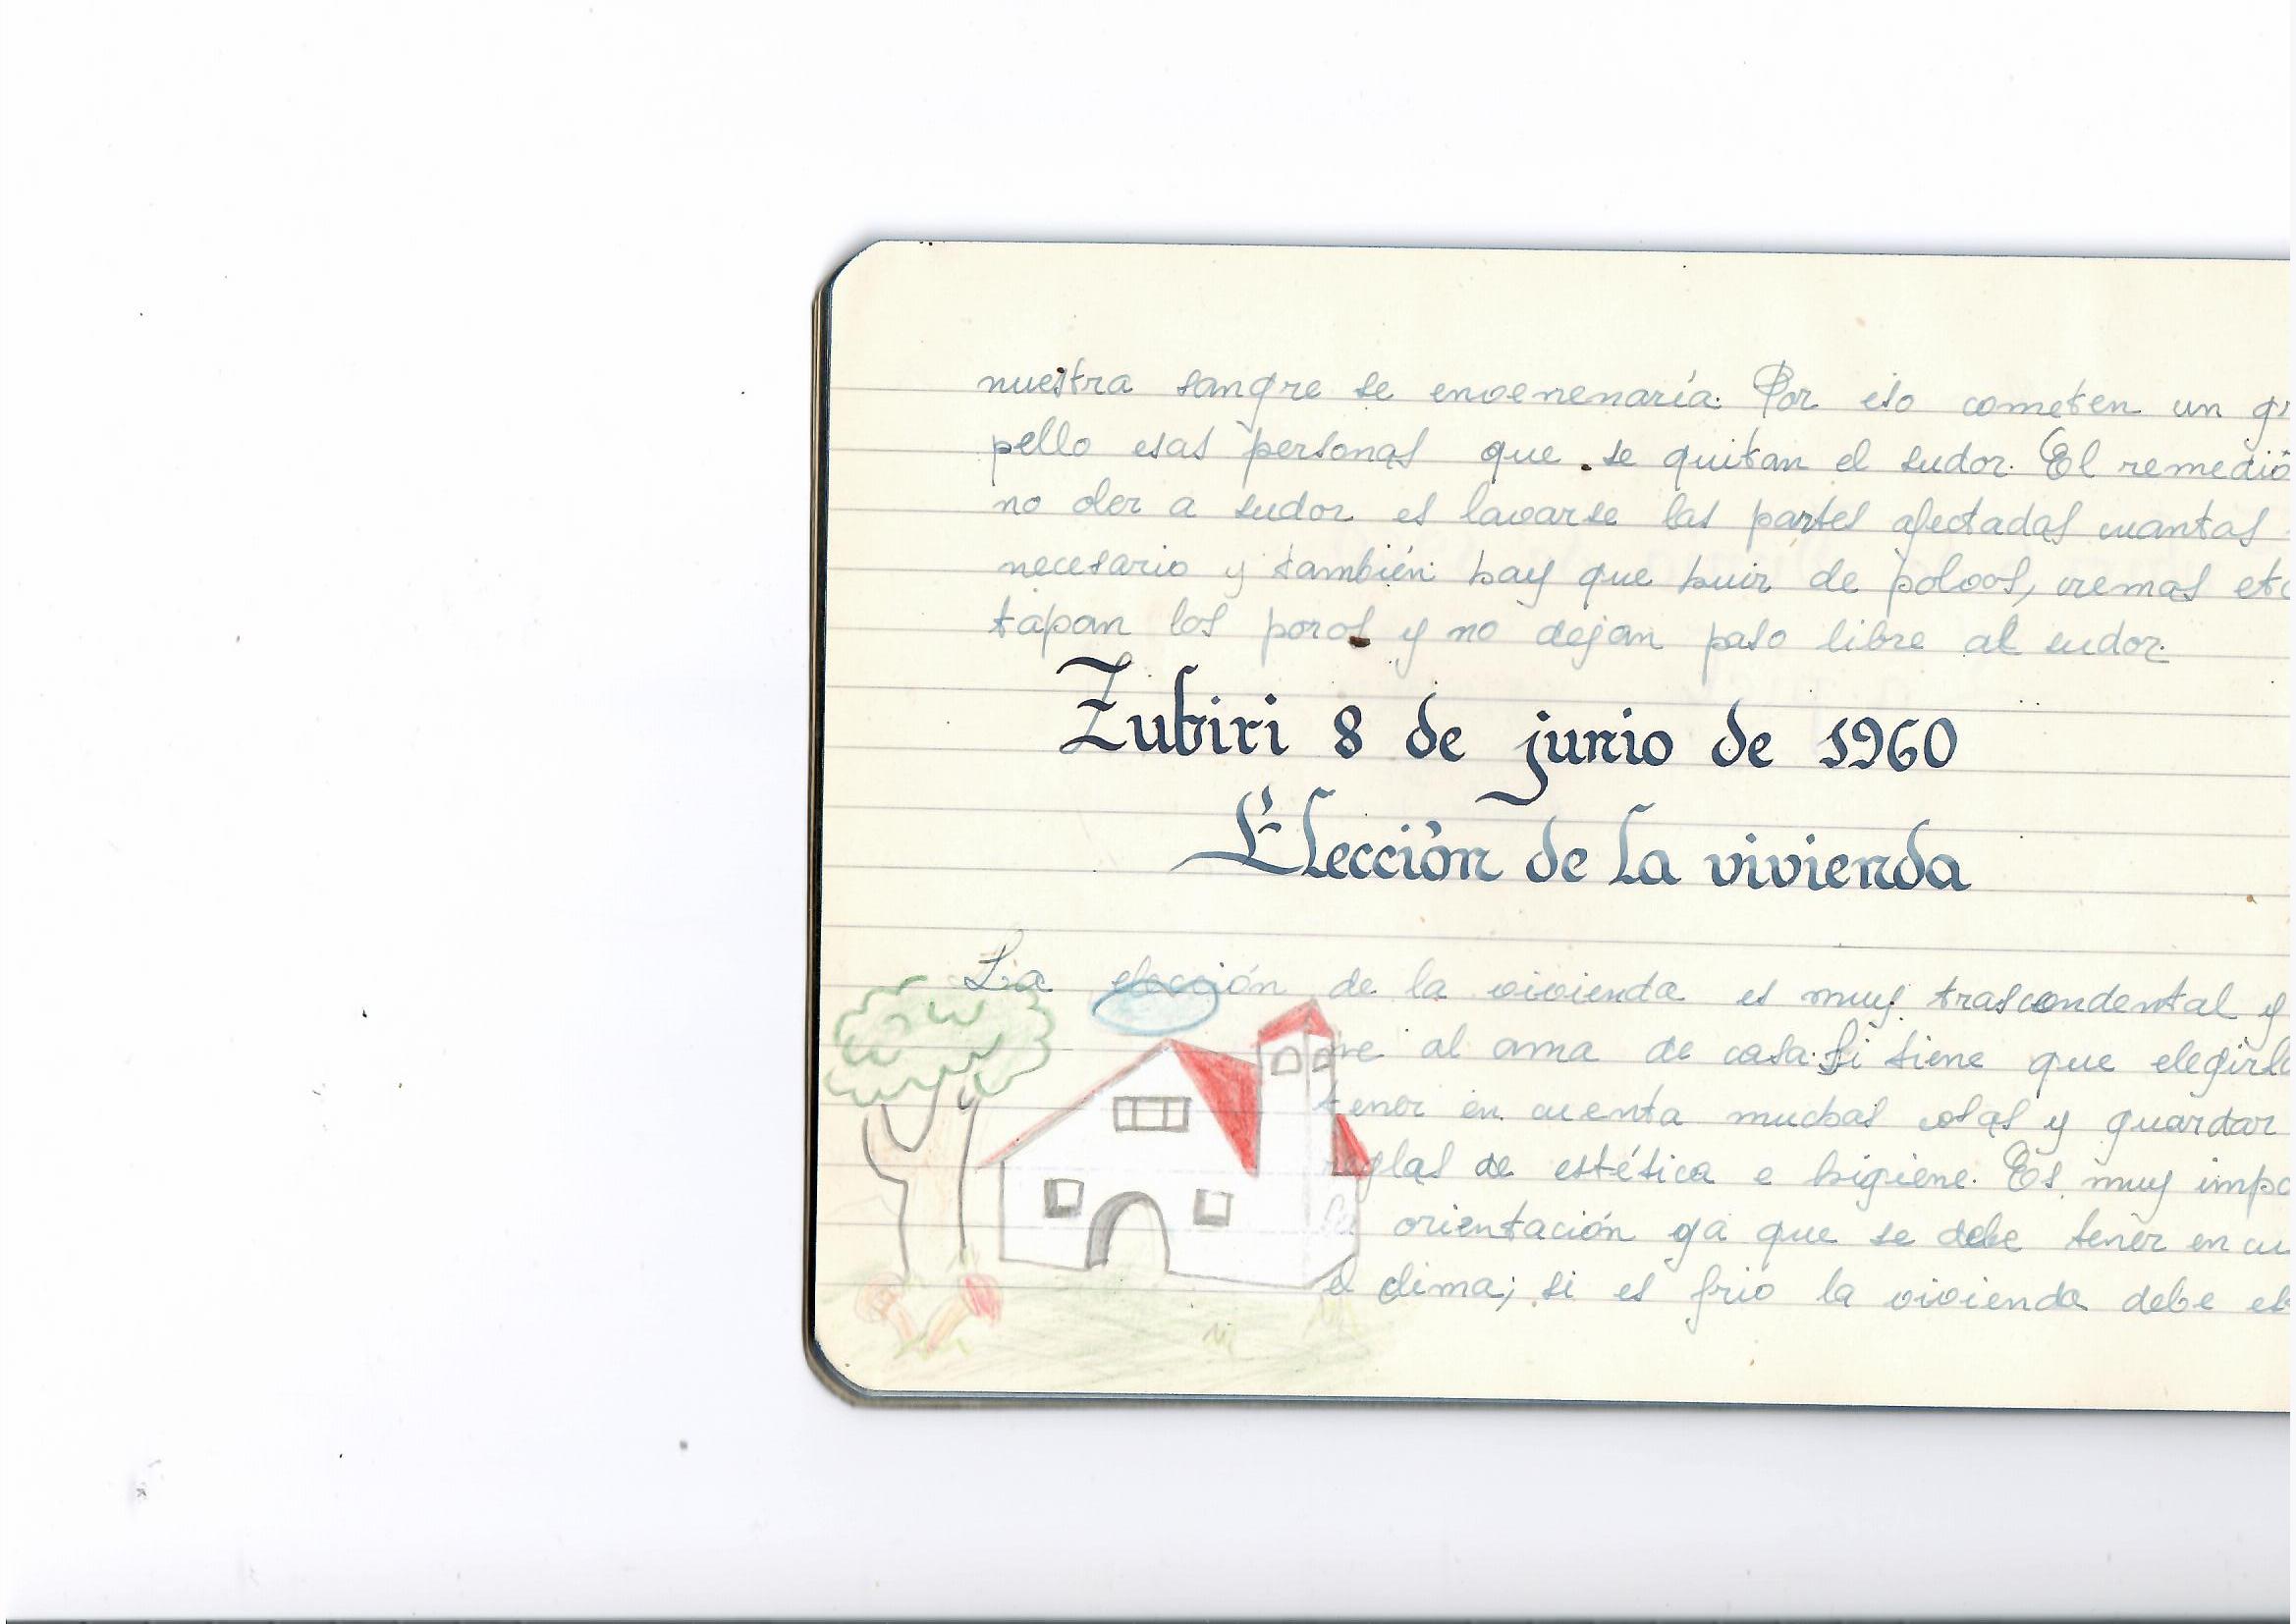 nuestra sangre se envenenaría. Por eso cometen un gr
pello esas personas que se quitan el sudor. El remedio
no oler a sudor es lavarse las partes afectadas cuantas
necesario y también hay que huir de polvos, cremas etc
tapan los poros y no dejan paso libre al sudor.
Zubiri 8 de junio de 1960
Elección de la vivienda
La elección de la vivienda es muy trascondental y
ne al ama de casa. Si tiene que elegirla
tener en cuenta muchas cosas y guardar
reglas de estética e higiene. Es muy impo
la orientación ya que se debe tener en cu
el clima; si es frio la vivienda debe es